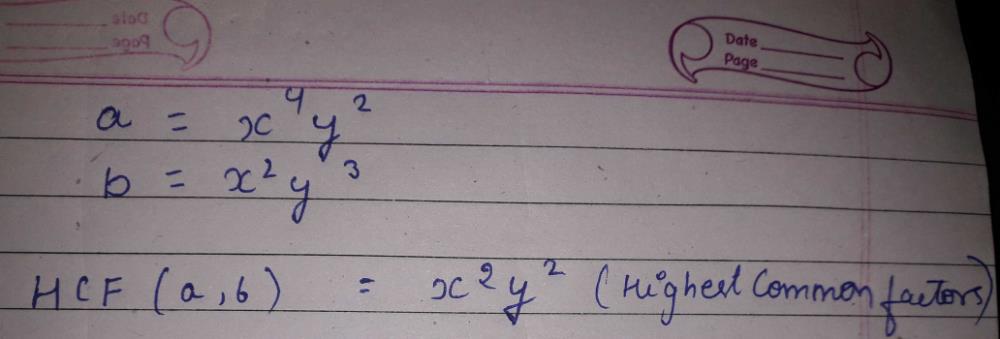 Date
Page
a = x⁴y²
b = x²y³
HCF (a,b) = x²y² (Highest Common factors)